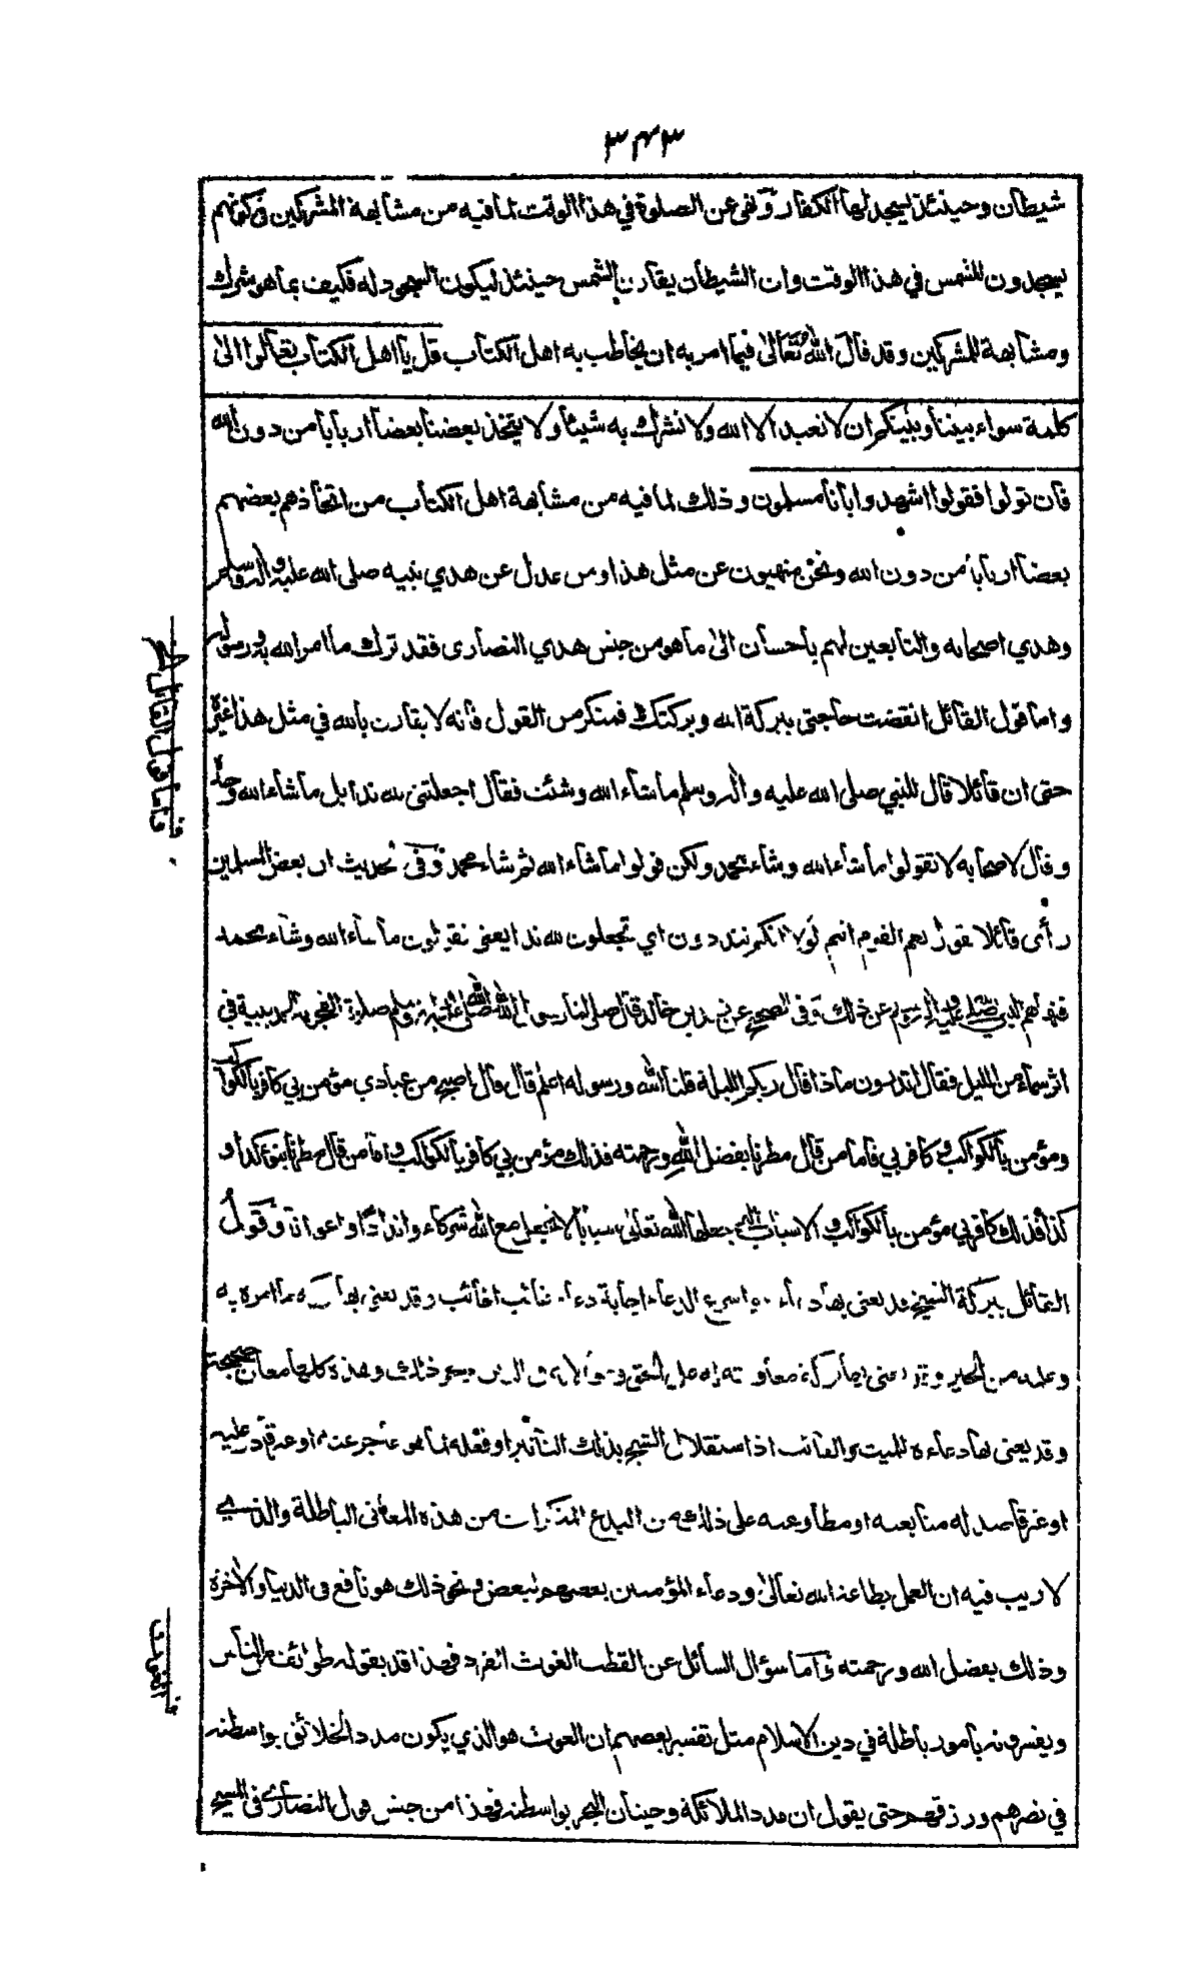 ٣٤٣
شيطان وحينئذ يسجد لها الكفار ونهى عن الصلوة في هذا الوقت لما فيه من مشابهة المشركين في كونهم
يسجدون للشمس في هذا الوقت وان الشيطان يقارن الشمس حينئذ ليكون السجود له فكيف بما هو شرك
ومشابهة للمشركين وقد قال الله تعالى فيما امر به ان يخاطب به اهل الكتاب قل يا اهل الكتاب تعالوا الى
كلمة سواء بيننا وبينكم ان لا نعبد الا الله ولا نشرك به شيئا ولا يتخذ بعضنا بعضا اربابا من دون الله
فان تولوا فقولوا اشهدوا بانا مسلمون وذلك لما فيه من مشابهة اهل الكتاب من اتخاذهم بعضهم
بعضا اربابا من دون الله ونحن منهيون عن مثل هذا ومن عدل عن هدي نبيه صلى الله عليه واله وسلم
وهدي اصحابه والتابعين لهم باحسان الى ما هو من جنس هدي النصارى فقد ترك ما امر الله به ورسوله
واما قول القائل انقضت حاجتي ببركة الله وبركتك فمنكر من القول فانه لا يقارن بالله في مثل هذا غيره
حتى ان قائلا قال للنبي صلى الله عليه واله وسلم ما شاء الله وشئت فقال اجعلتني لله ندا بل ما شاء الله وحده
وقال لاصحابه لا تقولوا ما شاء الله وشاء محمد ولكن قولوا ما شاء الله ثم شاء محمد وفي الحديث ان بعض المسلمين
رأى قائلا يقول نعم القوم انتم لولا انكم تنددون اي تجعلون لله ندا يعني تقولون ما شاء الله وشاء محمد
فنهاهم النبي صلى الله عليه واله وسلم عن ذلك وفي الصحيح عن زيد بن خالد قال صلى لنا رسول الله صلى الله عليه واله وسلم صلوة الفجر بالحديبية في
اثر سماء من الليل فقال اتدرون ماذا قال ربكم الليلة قلنا الله ورسوله اعلم قال قال اصبح من عبادي مؤمن بي كافر بالكواكب
ومؤمن بالكواكب كافر بي فاما من قال مطرنا بفضل الله ورحمته فذلك مؤمن بي كافر بالكواكب واما من قال مطرنا بنوء كذا و
كذا فذلك كافر بي مؤمن بالكواكب والاسباب التي جعلها الله تعالى سببا لا تجعل مع الله شركاء واندادا واعوانا وقول
القائل ببركة الشيخ قد يعني بها دعاءه واسرع الدعاء اجابة دعاء غائب لغائب وقد يعني بها بركة ما امره به
وعلمه من الخير وقد يعني بها بركة معاونته له على الحق وموالاته في الدين ونحو ذلك وهذه كلها معان صحيحة
وقد يعني بها دعاءه للميت والغائب اذ استقلال الشيخ بذلك التاثير او فعله لما هو عاجز عنه او غير قادر عليه
او غير قاصد له متابعته او مطاوعته على ذلك من البدع المنكرات من هذه المعاني الباطلة والذي
لا ريب فيه ان العمل بطاعة الله تعالى ودعاء المؤمنين بعضهم لبعض ونحو ذلك هو نافع في الدنيا والاخرة
وذلك بفضل الله ورحمته واما سؤال السائل عن القطب الغوث الفرد فهذا قد يقوله طوائف من الناس
ويفسرونه بامور باطلة في دين الاسلام مثل تفسير بعضهم ان الغوث هو الذي يكون مدد الخلائق بواسطته
في نصرهم ورزقهم حتى يقول ان مدد الملائكة وحيتان البحر بواسطته فهذا من جنس قول النصارى في المسيح